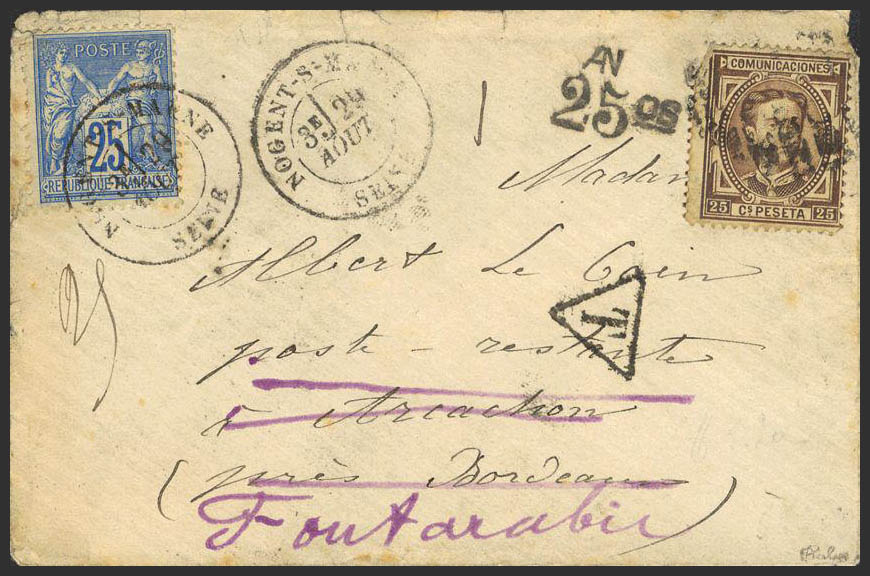 POSTE
25
REPUBLIQUE FRANÇAISE
MARNE
SEINE
NOGENT-S-MA
3E 29
AOUT
SEINE
AN
25 OS
COMUNICACIONES
25 Cs PESETA 25
Madam
Albert Le Coin
poste-restante
T
25
à Arcachon
(près Bordeaux)
Fontarabie